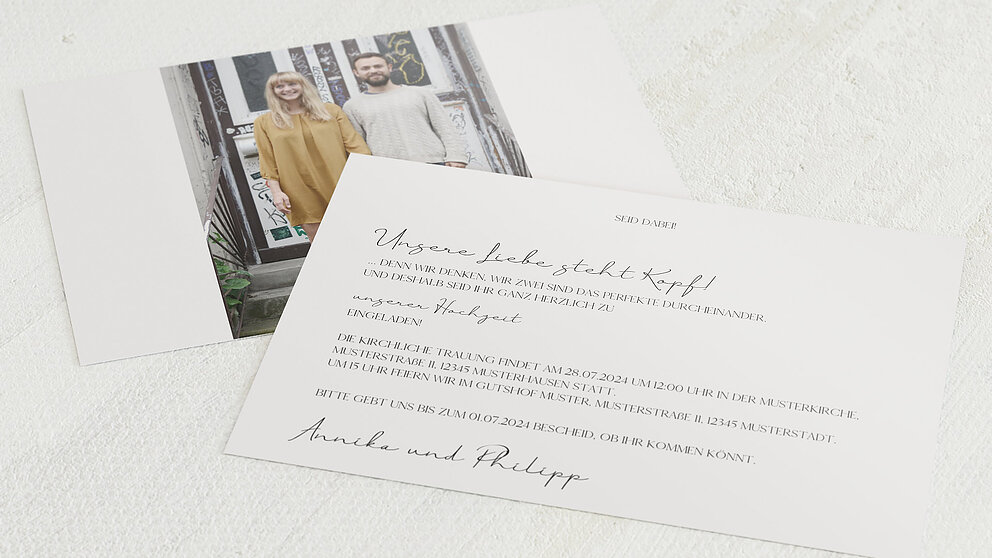 SEID DABEI!
Unsere Liebe steht Kopf!
... DENN WIR DENKEN, WIR ZWEI SIND DAS PERFEKTE DURCHEINANDER.
UND DESHALB SEID IHR GANZ HERZLICH ZU
unserer Hochzeit
EINGELADEN!
DIE KIRCHLICHE TRAUUNG FINDET AM 28.07.2024 UM 12:00 UHR IN DER MUSTERKIRCHE,
MUSTERSTRAßE 11, 12345 MUSTERHAUSEN STATT.
UM 15 UHR FEIERN WIR IM GUTSHOF MUSTER, MUSTERSTRAßE 11, 12345 MUSTERSTADT.
BITTE GEBT UNS BIS ZUM 01.07.2024 BESCHEID, OB IHR KOMMEN KÖNNT.
Annika und Philipp